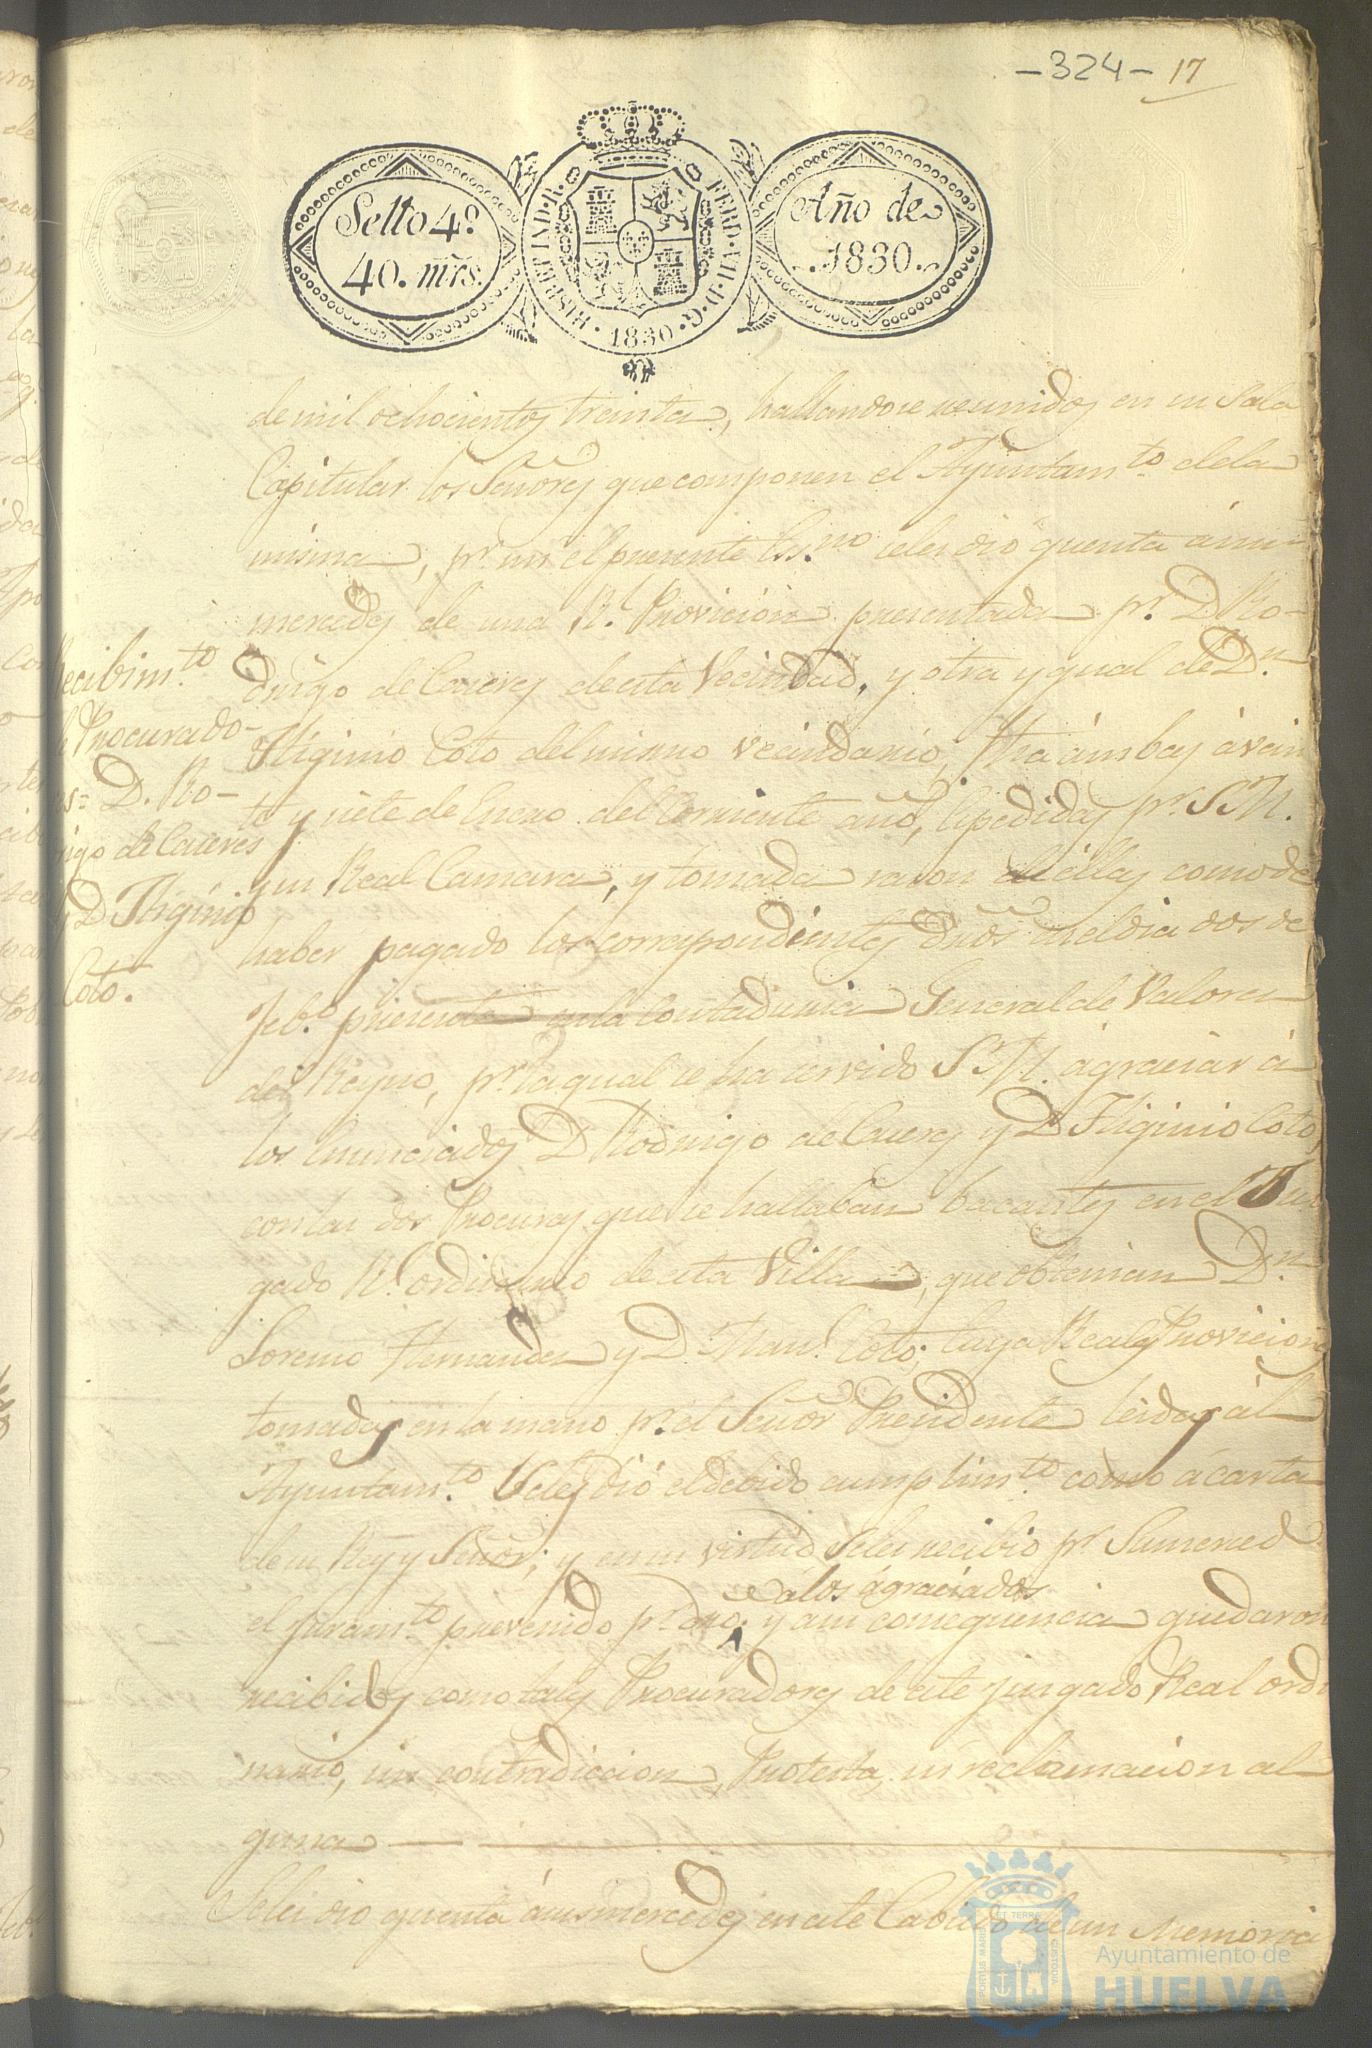 -324- 17
Sello 4º
40. mrs.
HISP. ET IND. R. FERD. VII. D. G. 1830
Año de
1830.
de mil ochocientos treinta, hallandose reunidos en su Sala
Capitular los Señores que componen el Ayuntamto. dela
misma, pr. mi el presente Essno. seles dió quenta á sus
mercedes de una Rl. Provicion presentada pr. D. Ro-
drigo de Caceres deesta Vecindad, y otra ygual de Dn.
Higinio Coto del mismo vecindario, fha ámbas á vein
te y siete de Enero del Corriente año, Espedidas pr. S. M.
y su Real Camara, y tomada razon de éllas como de
haber pagado los correspondientes dros. en el dia dos de
Feb.o presente en la Contaduria General de Valores
del Reyno, pr. la qual se ha servido S. M. agraciar á
los Enunciados D Rodrigo de Caceres y D Higinio Coto,
con las dos Procuras que se hallaban bacantes en el Juz
gado Rl. ordinario de esta Villa, que obtenian Dn.
Lorenzo Hernandez y D. Manl. Coto; Cuyas Reales Proviciones
tomadas en la mano pr. el Señor Presidente leidas al
Ayuntamto. Seles dió el debido cumplimto. como á carta
de su Rey y Señor; y en su virtud seles recibio pr. Sumerced
á los agraciados
el juramto. prevenido pr. dro. y asu consequencia quedaron
recibidos como tales Procuradores de este juzgado Real ordi
nario, sin contradiccion, Protesta, ni reclamacion al
guna
Seles dio quenta á sus mercedes en este Cabildo de un Memoria
Recibimto.
de Procurado-
res= D. Ro-
drigo de Caceres
y D Higinio
Coto.
PORTUS MARIS ET TERRE CUSTODIA
Ayuntamiento de
HUELVA